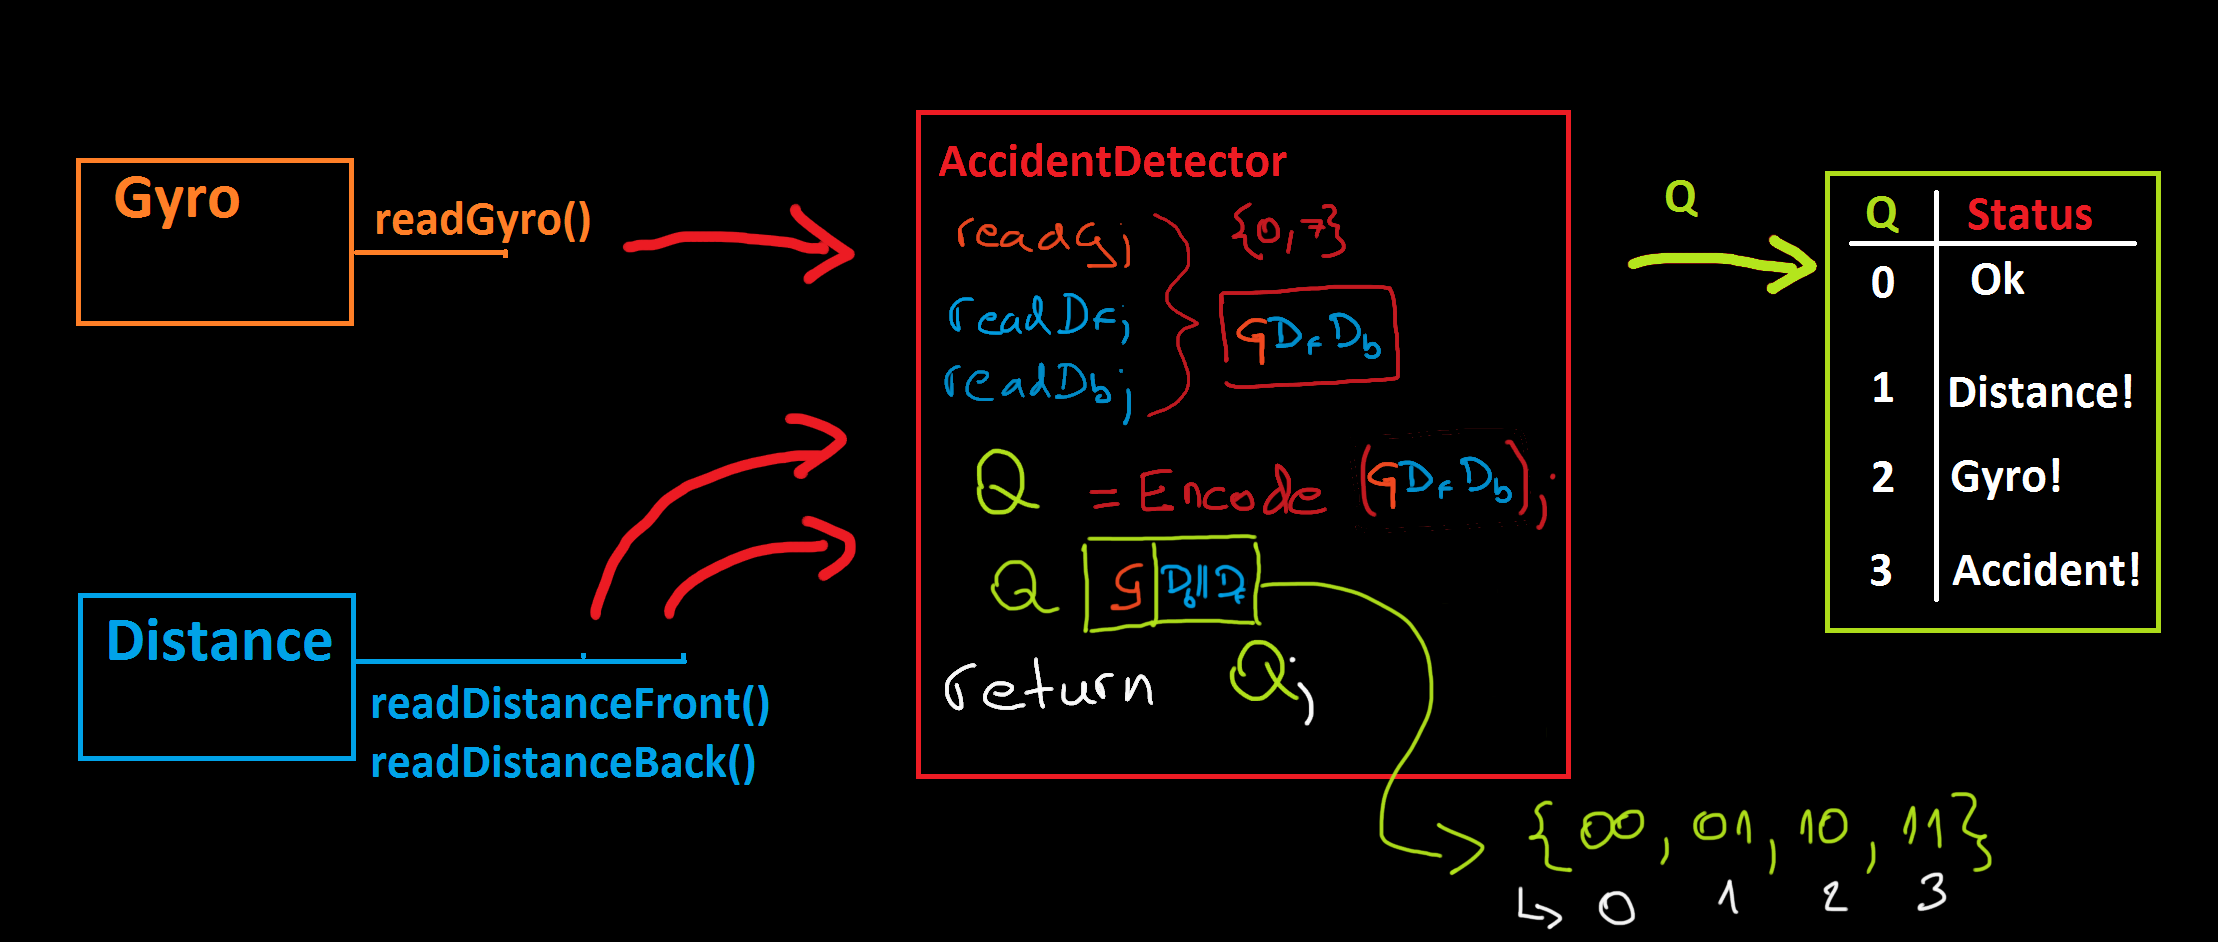 Gyro
readGyro()
Distance
readDistanceFront()
readDistanceBack()
AccidentDetector
readG;
readDf;
readDb;
{0,7}
GDfDb
Q = Encode (GDfDb);
Q G Db||Df
return Q;
{00, 01, 10, 11}
0 1 2 3
Q
Q Status
0 Ok
1 Distance!
2 Gyro!
3 Accident!